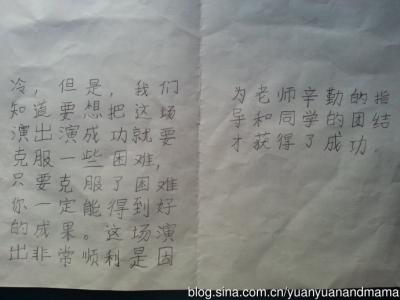 冷，但是，我们
知道要想把这场
演出演成功就要
克服一些困难，
只要克服了困难
你一定能得到好
的成果。这场演
出非常顺利是因
为老师辛勤的指
导和同学的团结
才获得了成功．
blog.sina.com.cn/yuanyuanandmama